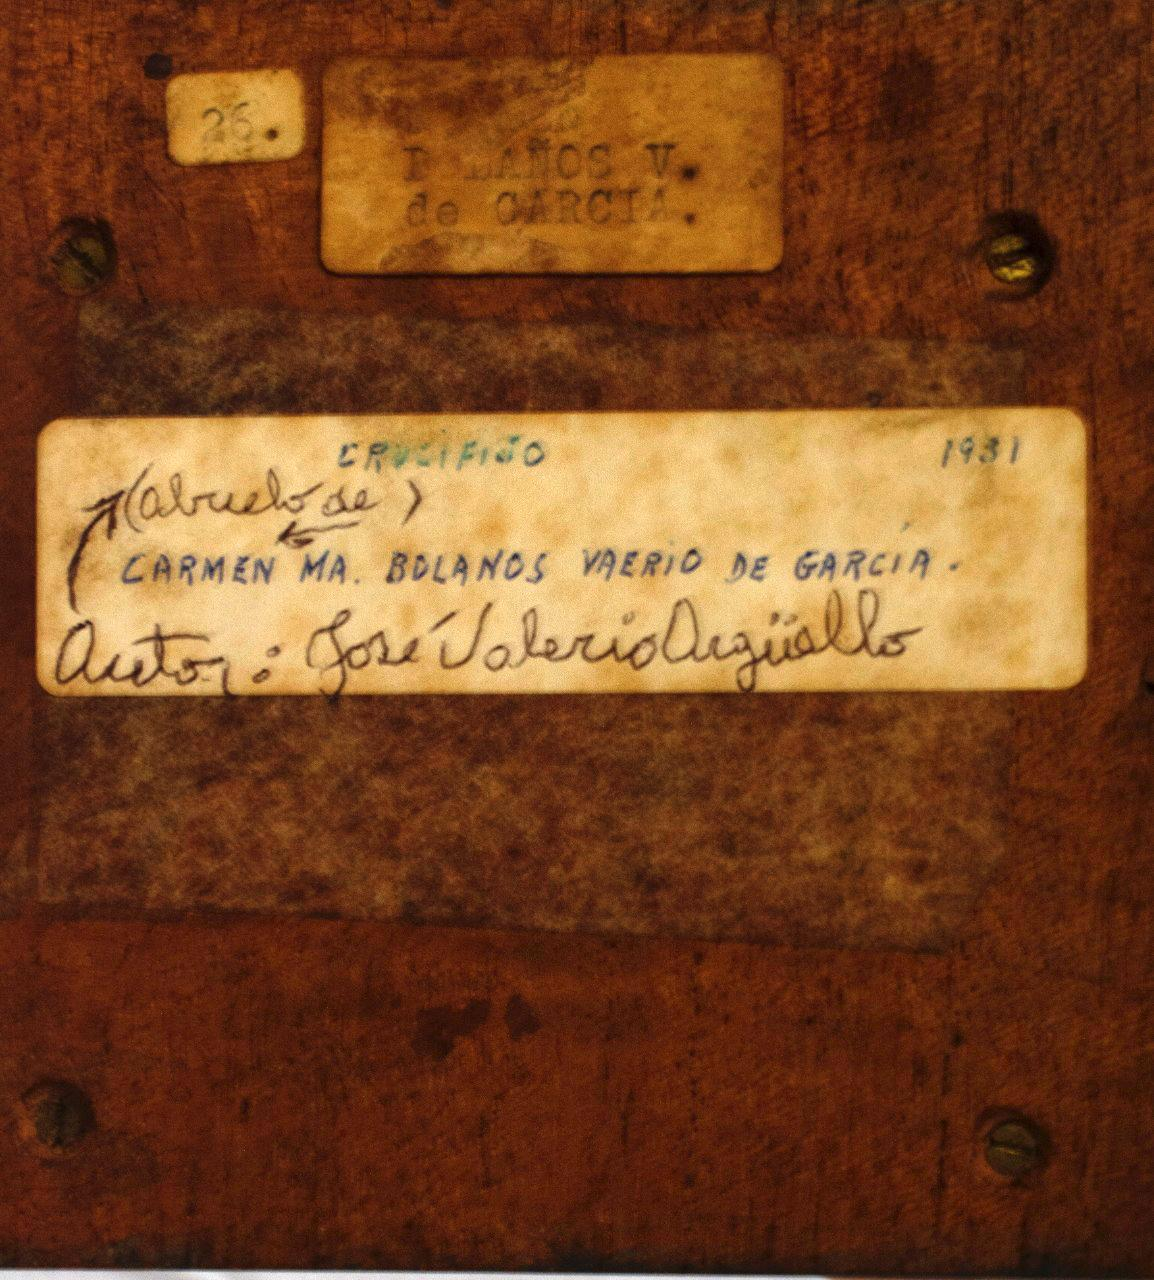 26.
BOLAÑOS V.
de GARCIA.
CRUCIFIJO 1931
(abuelo de)
CARMEN MA. BOLANOS VAERIO DE GARCÍA.
Autor: José Valerio Argüello